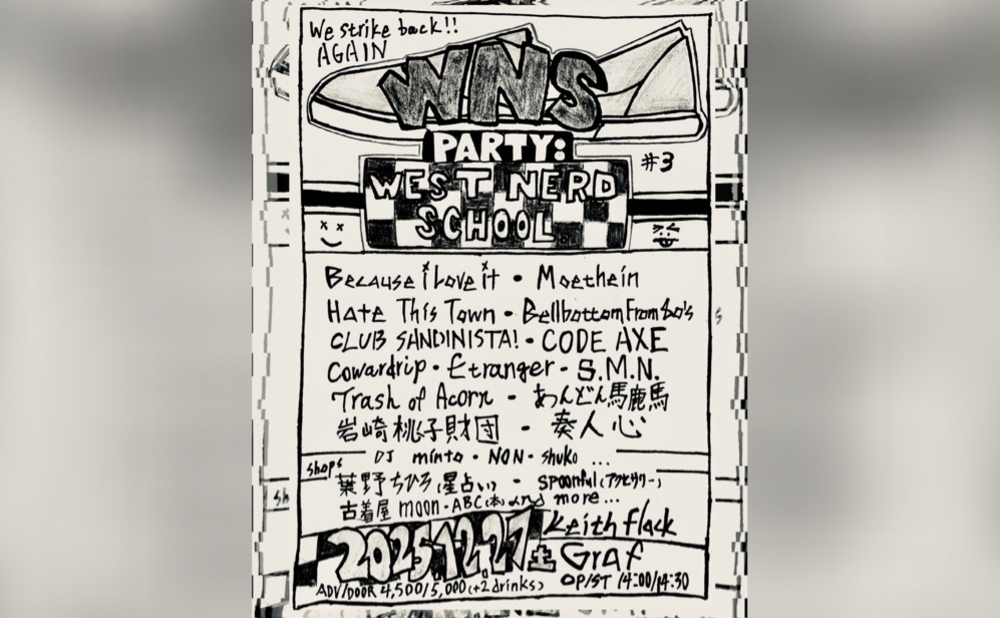 We strike back!!
AGAIN
WNS
PARTY:
#3
WEST NERD
SCHOOL
Because i Love it・Moethein
Hate This Town・Bellbottom From 80's
CLUB SANDINISTA!・CODE AXE
Cowardrip・Etranger・S.M.N.
Trash of Acorn・あんどん馬鹿馬
岩崎桃子財団・奏人心
DJ minto・NON・shuko ...
shops
葉野ちひろ(星占い)・spoonful(アクセサリー)
古着屋 moon・ABC(本) and more...
2025.12.27土
Keith Flack
Graf
ADV/DOOR 4,500/5,000(+2drinks)
OP/ST 14:00/14:30